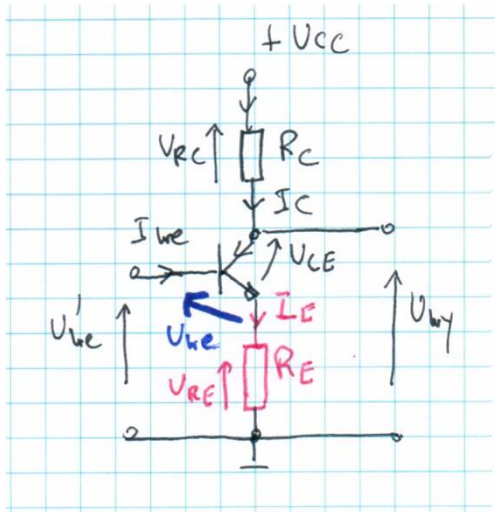 + UCC
URC RC
IC
Iwe
UCE
IE
U'we Uwe Uwy
URE RE